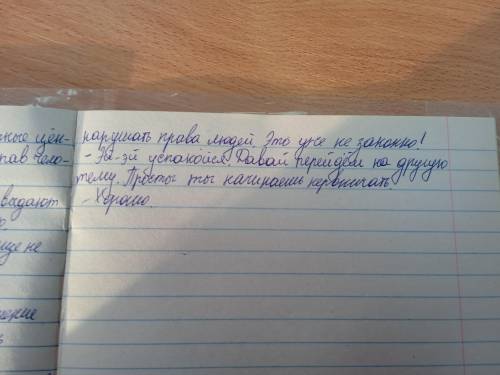 ные цен-
прав чело-
выдают
еще не
нарушать права людей. Это уже не законно!
- Эй-эй успакойся. Давай перейдём на другую
тему. Просты ты начинаешь нервничать
- Хорошо.